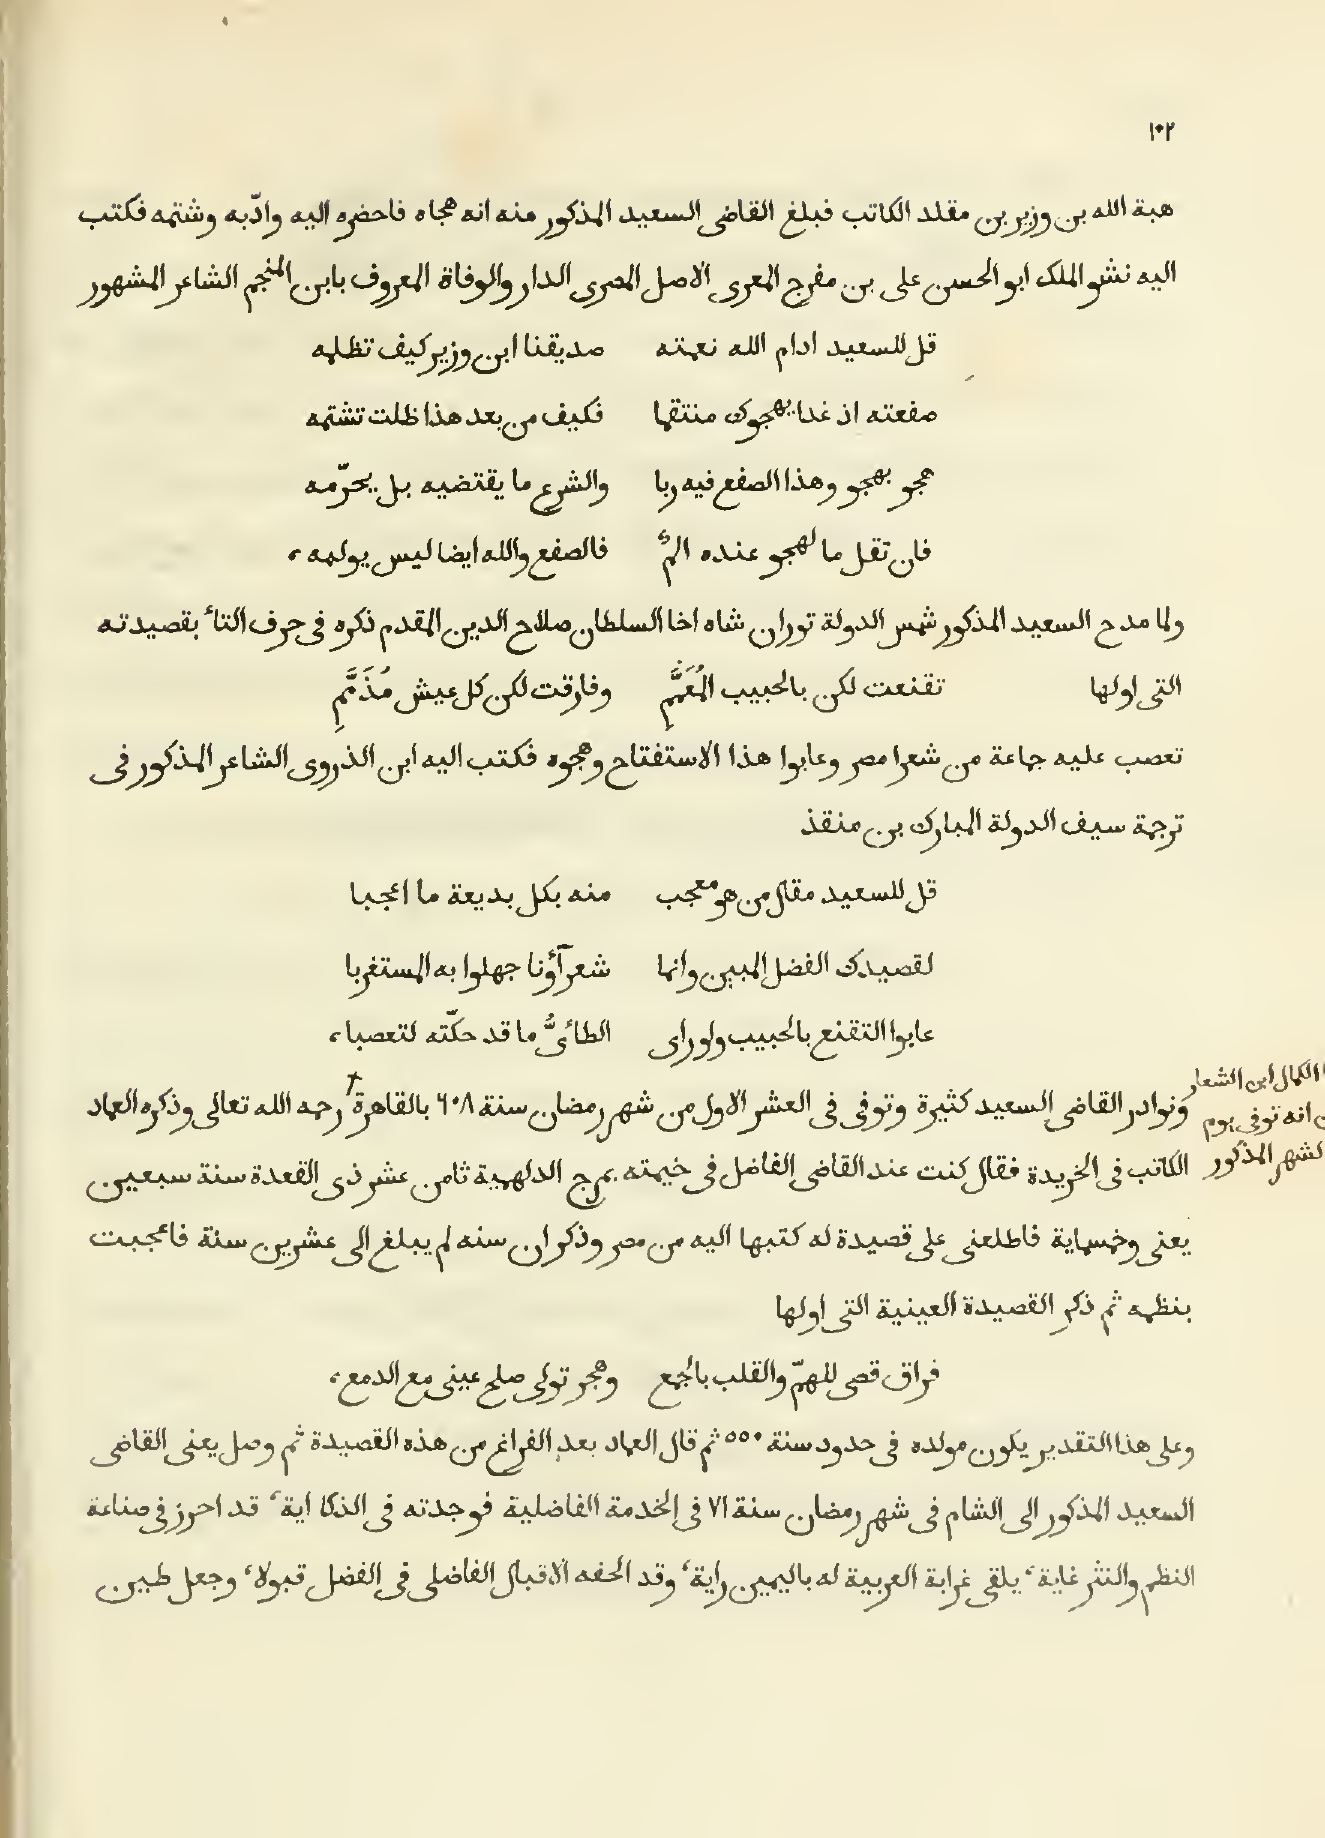 ١٠٢
هبة الله بن وزير بن مقلد الكاتب فبلغ القاضى السعيد المذكور منه انه هجاه فاحضره اليه وادّبه وشتمه فكتب
اليه نشو الملك ابو الحسن على بن مفرج المعرى الاصل المصرى الدار والوفاة المعروف بابن المنجم الشاعر المشهور
قل للسعيد ادام الله نعمته صديقنا ابن وزير كيف تظلمه
صفعته اذ غدا يهجوك منتقما فكيف من بعد هذا ظلت تشتمه
هجو بهجو وهذا الصفع فيه ربا والشرع ما يقتضيه بل يحرّمه
فان تقل ما لهجو عنده المٌ فالصفع والله ايضا ليس يولمه،
ولما مدح السعيد المذكور شمس الدولة توران شاه اخا السلطان صلاح الدين المقدم ذكره فى حرف التاء بقصيدته
التى اولها تقنعت لكن بالحبيب المُعَمَّمِ وفارقت لكن كل عيش مُذَمَّمِ
تعصب عليه جماعة من شعرا مصر وعابوا هذا الاستفتاح وهجوه فكتب اليه ابن الذروى الشاعر المذكور فى
ترجمة سيف الدولة المبارك بن منقذ
قل للسعيد مقال من هو معجب منه بكل بديعة ما اعجبا
لقصيدك الفضل المبين وانما شعرآؤنا جهلوا به المستغربا
عابوا التقنع بالحبيب ولو راى الطائىُّ ما قد حكّته لتعصبا،
ونوادر القاضى السعيد كثيرة وتوفى فى العشر الاول من شهر رمضان سنة ٦٠٨ بالقاهرة رحمه الله تعالى وذكره العماد
الكمال ابن الشعار
انه توفى يوم
لشهر المذكور
الكاتب فى الخريدة فقال كنت عند القاضى الفاضل فى خيمته بمرج الدلهمية ثامن عشر ذى القعدة سنة سبعين
يعنى وخمسماية فاطلعنى على قصيدة له كتبها اليه من مصر وذكر ان سنه لم يبلغ الى عشرين سنة فاعجبت
بنظمه ثم ذكر القصيدة العينية التى اولها
فراق قضى للهمّ والقلب بالجمع وهجر تولى صلح عينى مع الدمع،
وعلى هذا التقدير يكون مولده فى حدود سنة ٥٥٠ ثم قال العماد بعد الفراغ من هذه القصيدة ثم وصل يعنى القاضى
السعيد المذكور الى الشام فى شهر رمضان سنة ٧١ فى الخدمة الفاضلية فوجدته فى الذكا اية، قد احرز فى صناعة
النظم والنثر غاية، يلقى غرابة العربية له باليمين راية، وقد الحفه الاقبال الفاضلى فى الفضل قبولا، وجعل طين